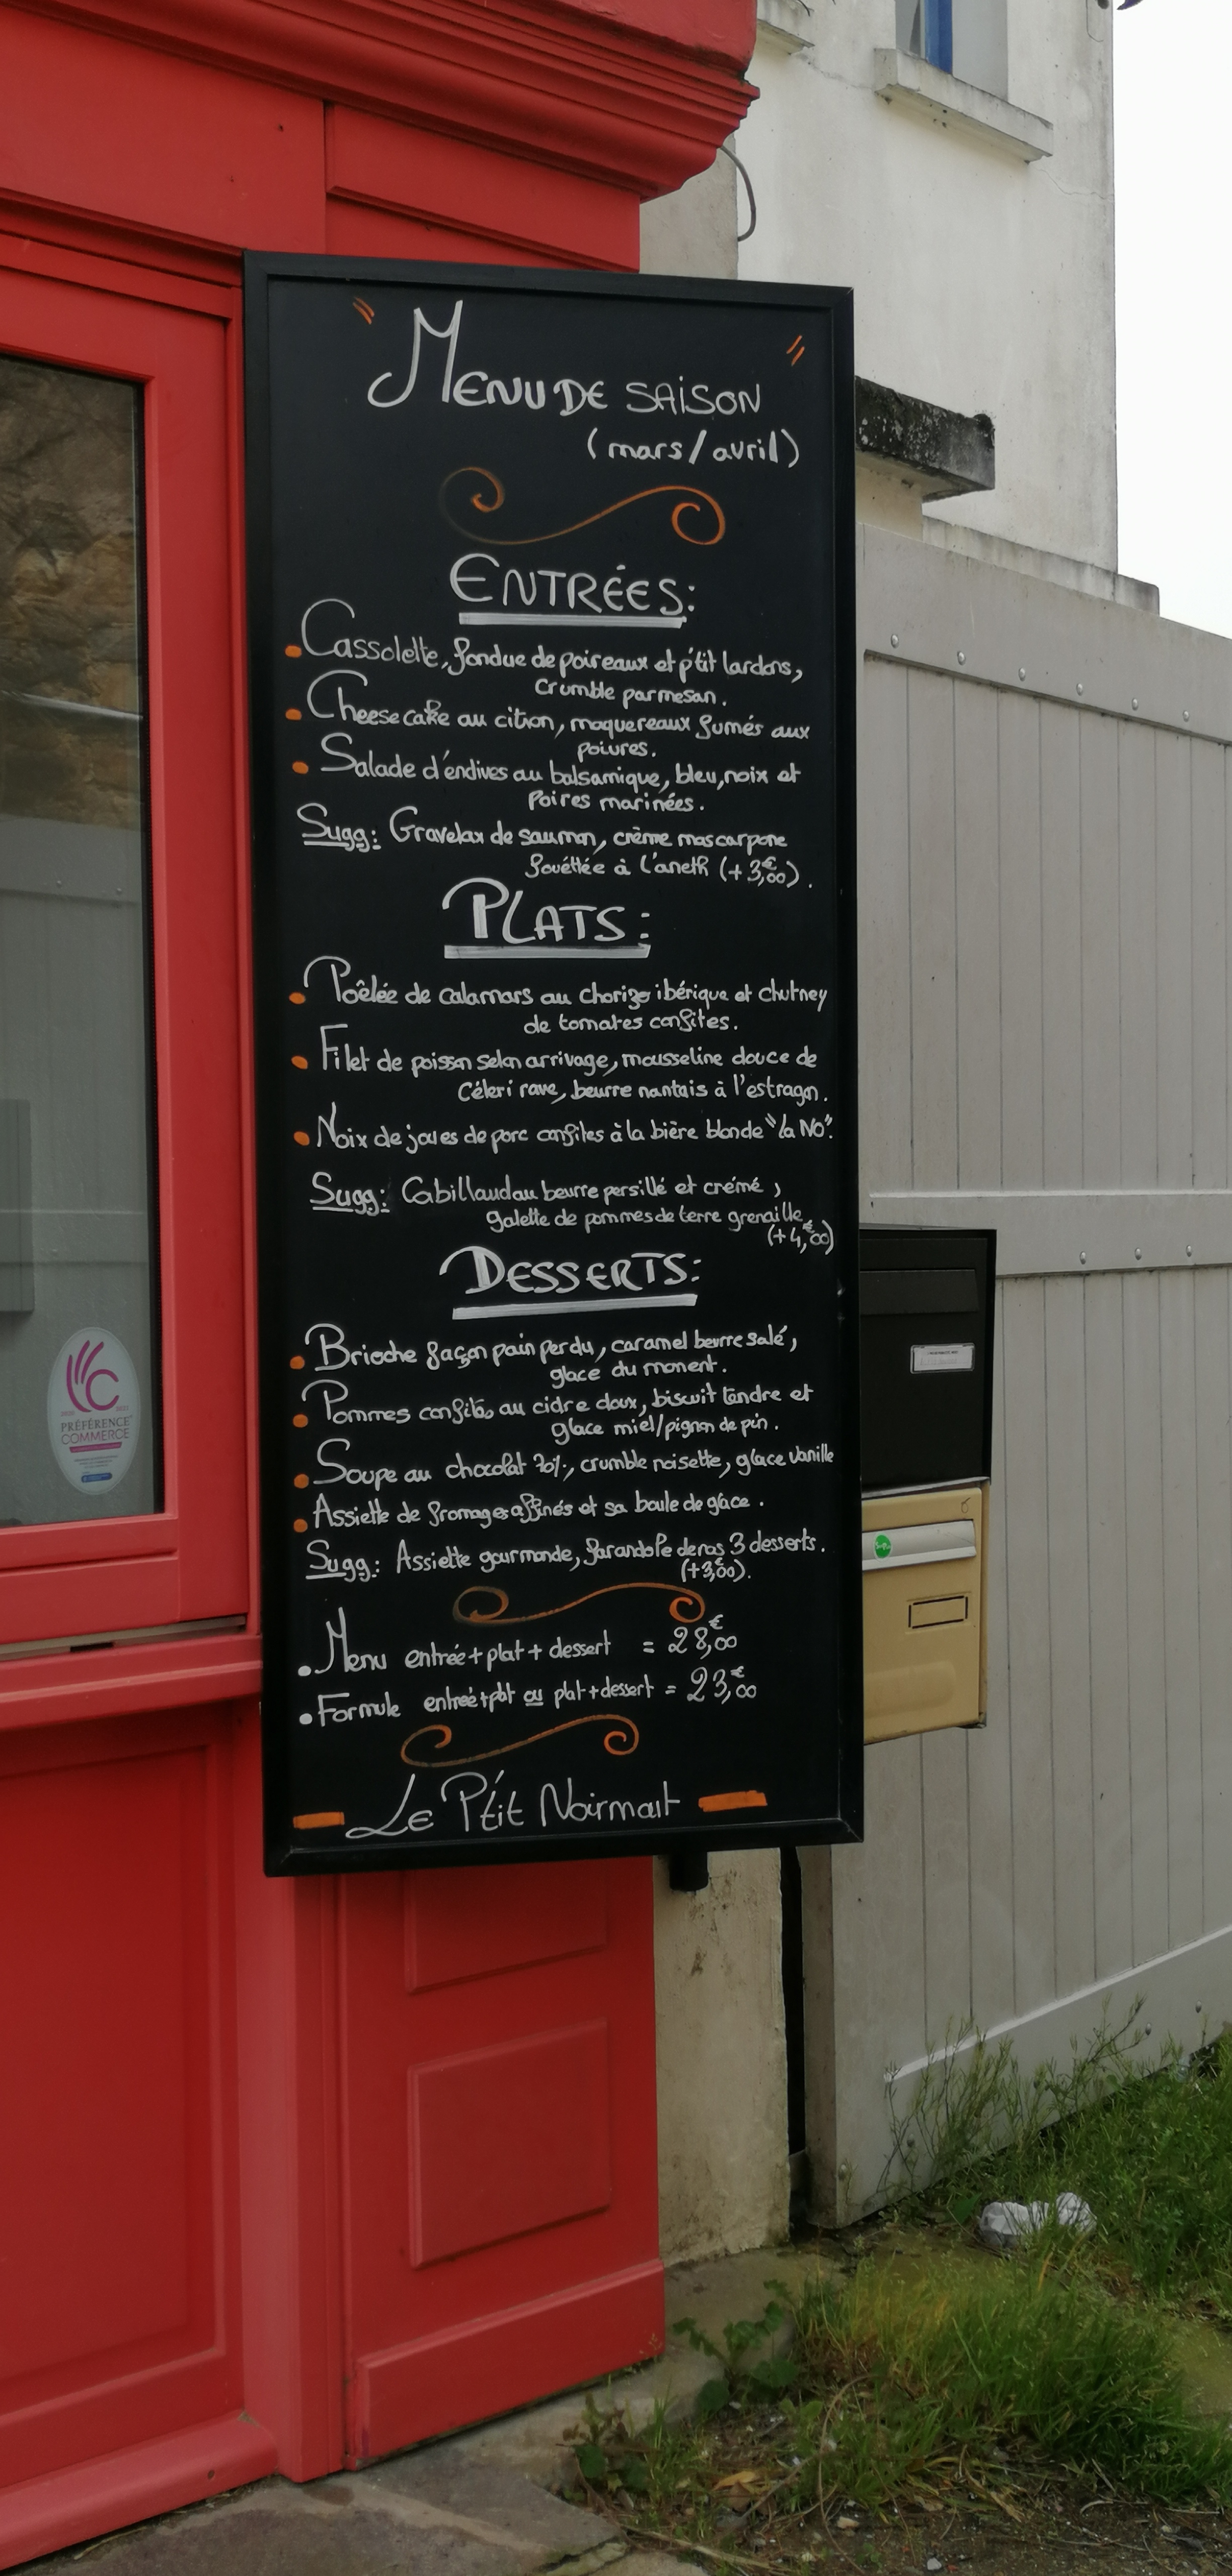 Menu de saison
(mars/avril)
Entrées:
Cassolette, fondue de poireaux et p'tit lardons,
Crumble parmesan.
Cheese cake au citron, maquereaux fumés aux
poivres.
Salade d'endives au balsamique, bleu, noix et
Poires marinées.
Sugg: Gravelax de saumon, crème mascarpone
fouéttée à l'aneth (+3,€00).
Plats:
Poêlée de calamars au chorizo ibérique et chutney
de tomates confites.
Filet de poisson selon arrivage, mousseline douce de
Céleri rave, beurre nantais à l'estragon.
Noix de joues de porc confites à la bière blonde "la NO".
Sugg: Cabillaud au beurre persillé et crémé,
galette de pommes de terre grenaille
(+4,€00)
Desserts:
Brioche façon pain perdu, caramel beurre salé,
glace du moment.
Pommes confites au cidre doux, biscuit tendre et
glace miel/pignon de pin.
Soupe au chocolat 70%, crumble noisette, glace vanille
Assiette de fromages affinés et sa boule de glace.
Sugg: Assiette gourmande, farandole de nos 3 desserts.
(+3,€00).
Menu entrée + plat + dessert = 28,€00
Formule entreé+plat ou plat+dessert = 23,€00
Le P'tit Noirmout
PRÉFÉRENCE
COMMERCE